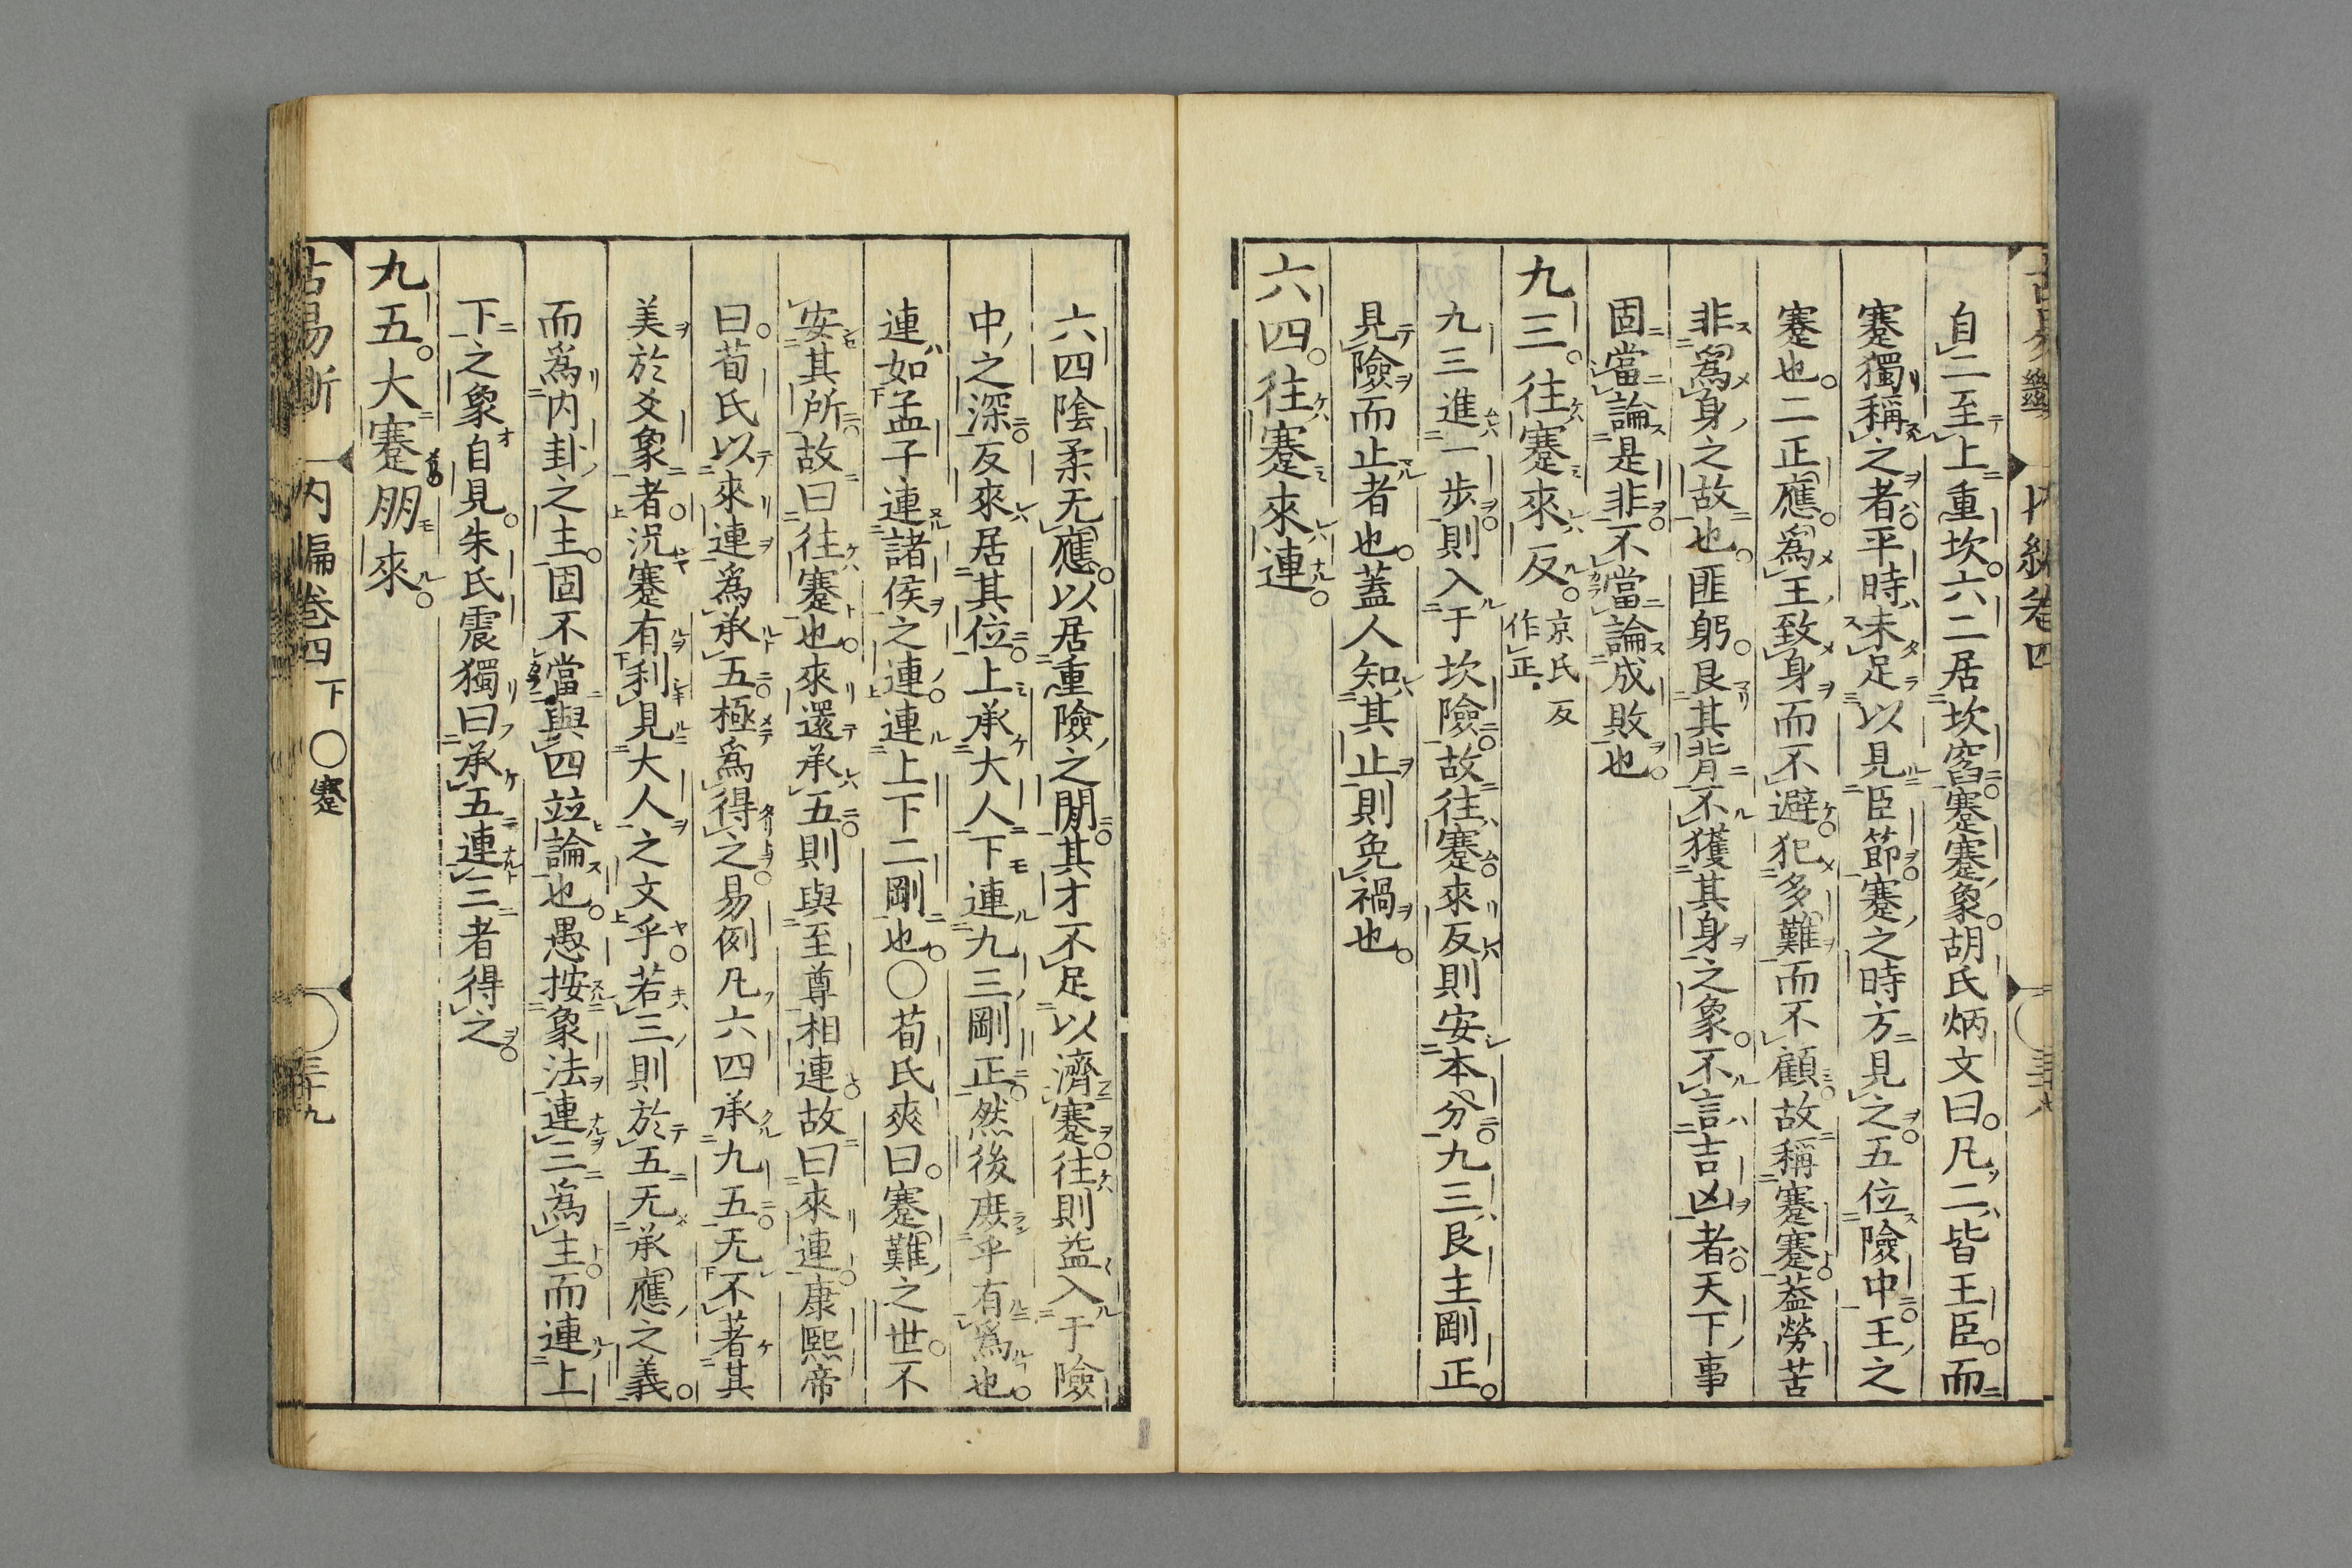 自二至上重坎。六二居坎窞蹇蹇象。胡氏炳文曰。凡二皆王臣。而
蹇獨稱之者。平時未足以見臣節。蹇之時方見之。五位險中。王之
蹇也。二正應。爲王致身而不避。犯多難而不顧。故稱蹇蹇。蓋勞苦
非爲身之故也。匪躬。艮其背不獲其身之象。不言吉凶者。天下事
固當論是非。不當論成敗也。
九三。往蹇來反。京氏反作正。
九三進一步。則入于坎險。故往蹇。來反則安本分。九三艮主剛正。
見險而止者也。蓋人知其止則免禍也。
六四。往蹇來連。
六四陰柔无應。以居重險之閒。其才不足以濟蹇。往則益入于險
中之深。反來居其位。上承大人。下連九三剛正。然後庶乎有爲也。
連如孟子連諸侯之連。連上下二剛也。○荀氏爽曰。蹇難之世。不
安其所。故曰往蹇也。來還承五。則與至尊相連。故曰來連。康熙帝
曰。荀氏以來連爲承五。極爲得之。易例凡六四承九五。无不著其
美於爻象者。況蹇有利見大人之文乎。若三則於五无承應之義。
而爲内卦之主。固不當與四竝論也。愚按象法連三爲主。而連上
下之象自見。朱氏震獨曰承五連三者得之。
九五。大蹇朋來。
内編卷四 下 ○蹇
三十九